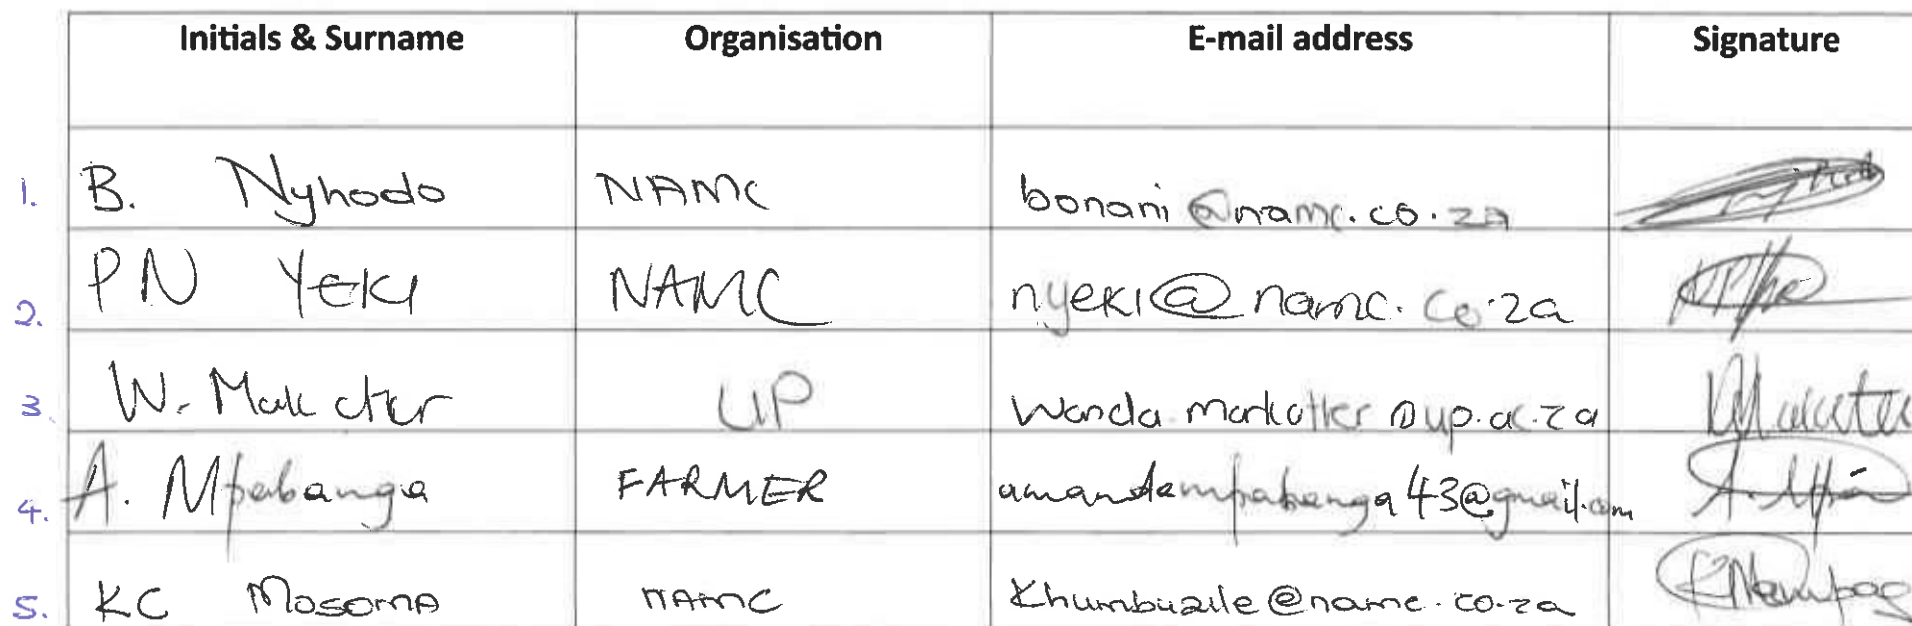 Initials & Surname Organisation E-mail address Signature
1. B. Nyhodo NAMC bonani@namc.co.za
2. PN Yeki NAMC nyeki@namc.co.za
3. W. Markotter UP wanda.markotter@up.ac.za
4. A. Mpabanga FARMER amandampabanga43@gmail.com
5. KC Mosoma NAMC Khumbuzile@namc.co.za